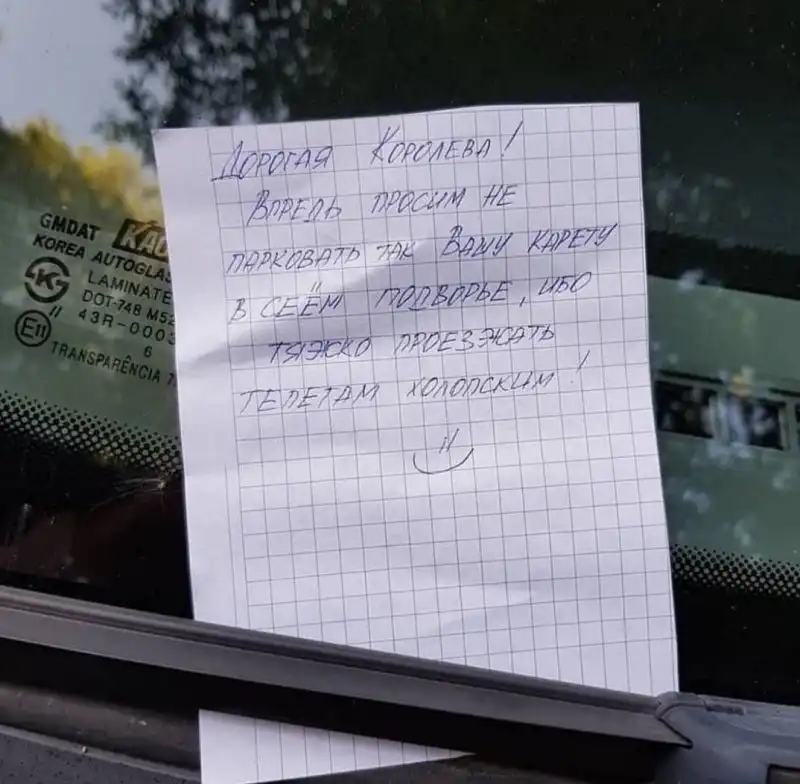 Дорогая Королева!
Впредь просим не
парковать так Вашу карету
в сеём подворье, ибо
тяжко проезжать
телегам холопским!
GMDAT
KOREA AUTOGLAS
LAMINATE
DOT-748 M52
43R-0003
E11
6
TRANSPARÊNCIA 7